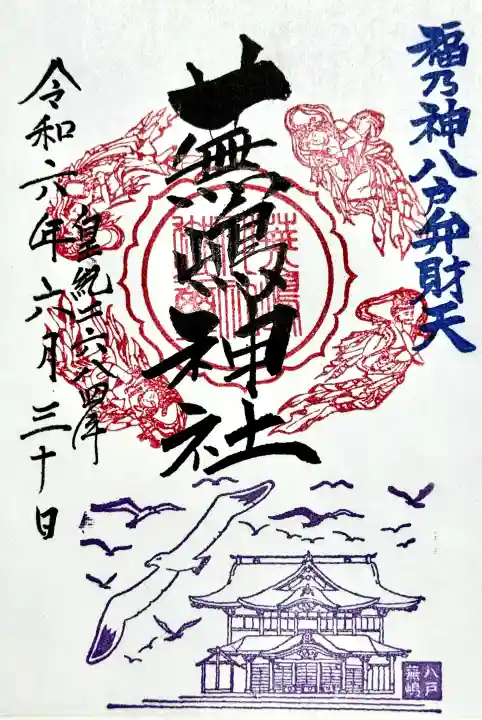 福乃神八戸弁財天
蕪嶋神社
皇紀二六八四年
令和六年六月三十日
八戸
蕪嶋